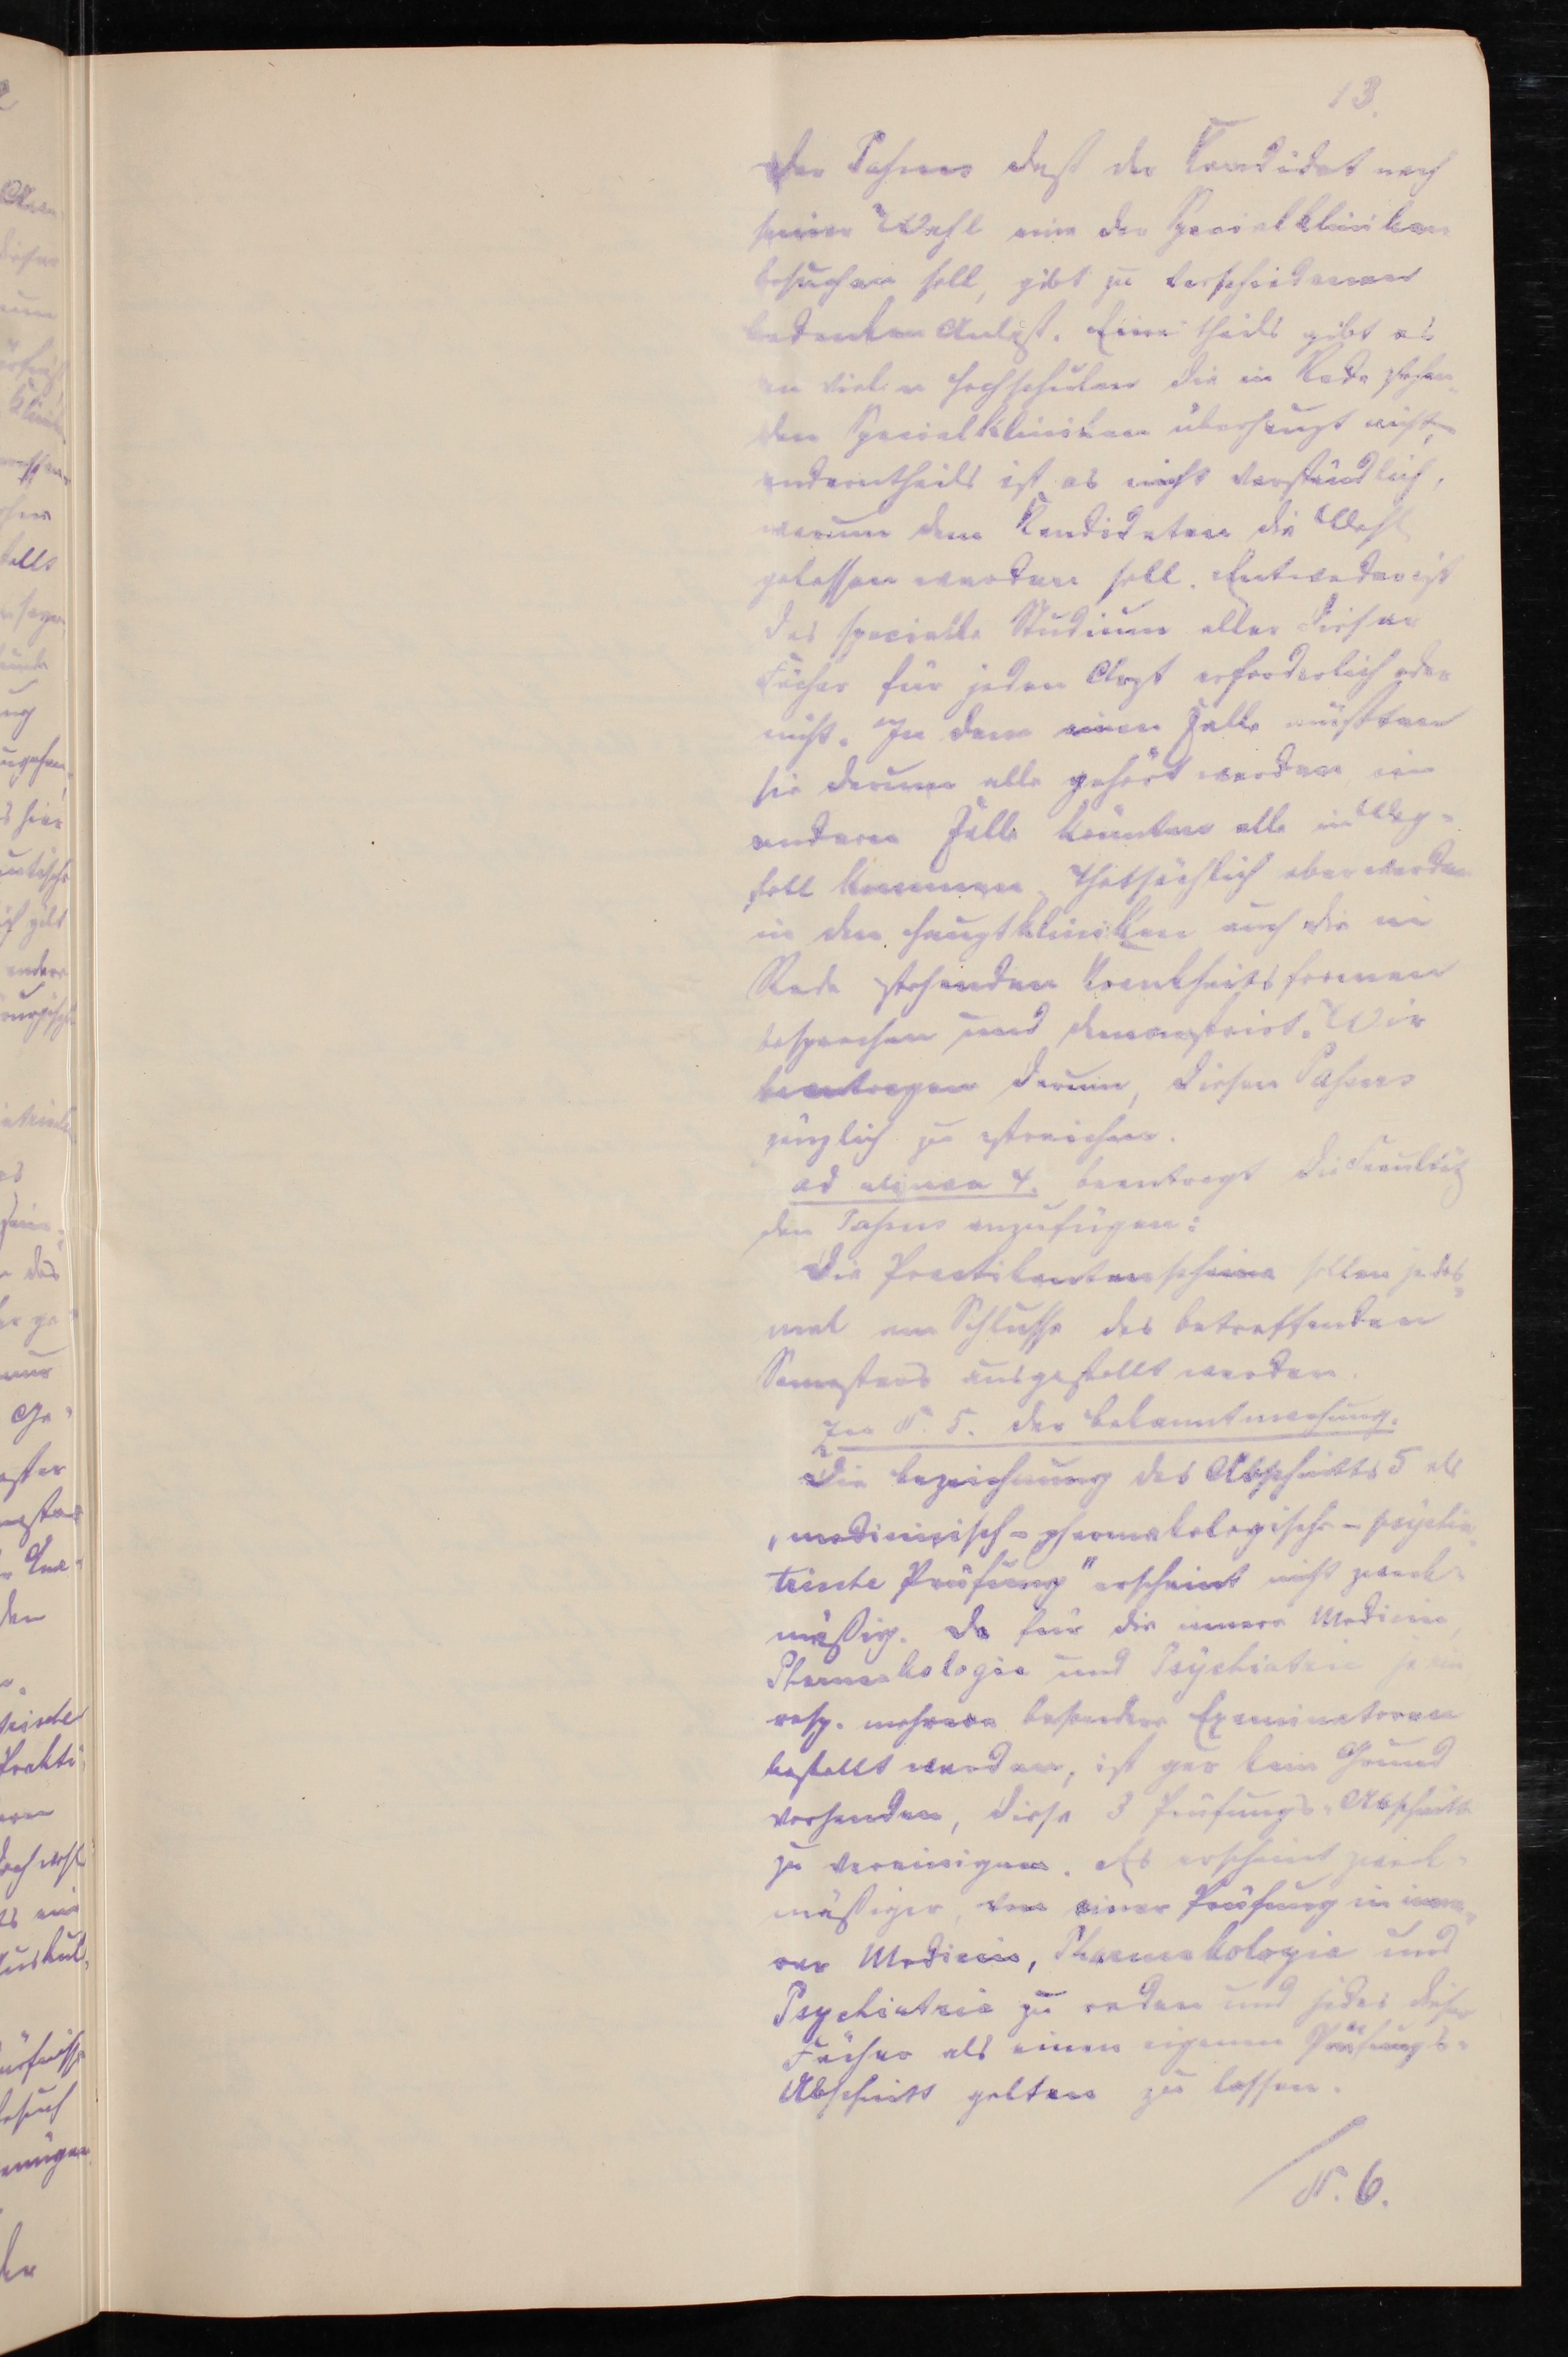 13.
Der Passus daß der Kandidat nach
seiner Wahl eine der Specialkliniken
besuchen soll, gibt zu verschiedenen
Bedenken Anlaß. Eines theils gibt es
an vielen Hochschulen die in Rede stehen-
den Specialkliniken überhaupt nicht,
anderntheils ist es nicht verständlich,
warum dem Kandidaten die Wahl
gelassen werden soll. Entweder ist
das specielle Studium aller dieser
Fächer für jeden Arzt erforderlich oder
nicht. In dem einen Falle müßten
sie darum alle gehört werden im
andern Falle könnten alle in Weg-
fall kommen. Thatsächlich aber werden
in den Hauptkliniken auch die in
Rede stehenden Krankheitsformen
besprochen und demonstrirt. Wir
beantragen darum, diesen Passus
gänzlich zu streichen.
ad alinea 4. beantragt die Facultät
den Passus anzufügen:
Die Practikantenscheine sollen jedes-
mal am Schlusse des betreffenden
Semesters ausgestellt werden.
Zu §. 5. der Bekanntmachung.
Die Bezeichnung des Abschnitts 5 als
„medicinisch-pharmakologisch-psychia-
trische Prüfung" erscheint nicht zweck-
mäßig. Da für die innere Medicin,
Pharmakologie und Psychiatrie je ein
resp. mehrere besondere Examinatoren
bestellt werden, ist gar kein Grund
vorhanden, diese 3 Prüfungs-Abschnitte
zu vereinigen. Es erscheint zweck-
mäßiger, von einer Prüfung in inne-
rer Medicin, Pharmakologie und
Psychiatrie zu reden und jedes dieser
Fächer als einen eigenen Prüfungs-
Abschnitt gelten zu lassen.
§. 6.